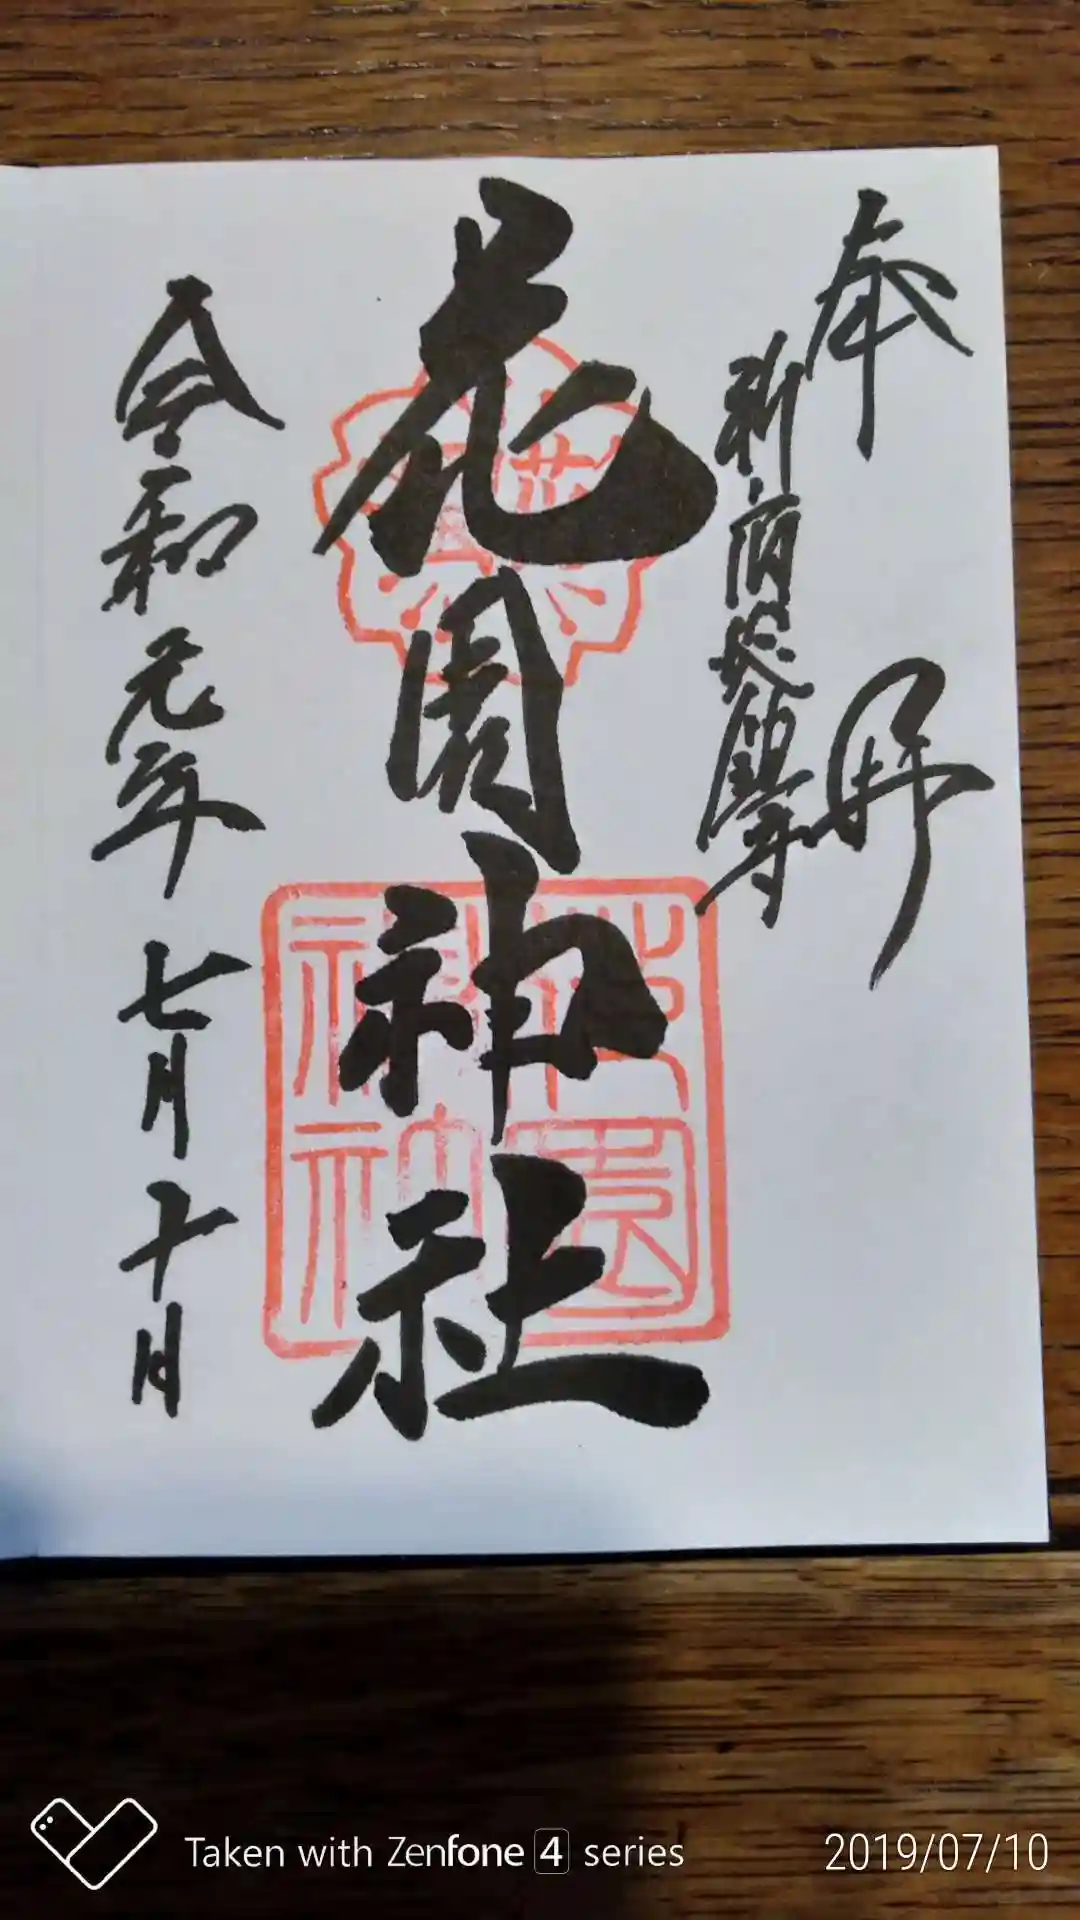 奉拝
新宿総鎮守
花園神社
令和元年七月十日
花園神社
Taken with Zenfone 4 series
2019/07/10